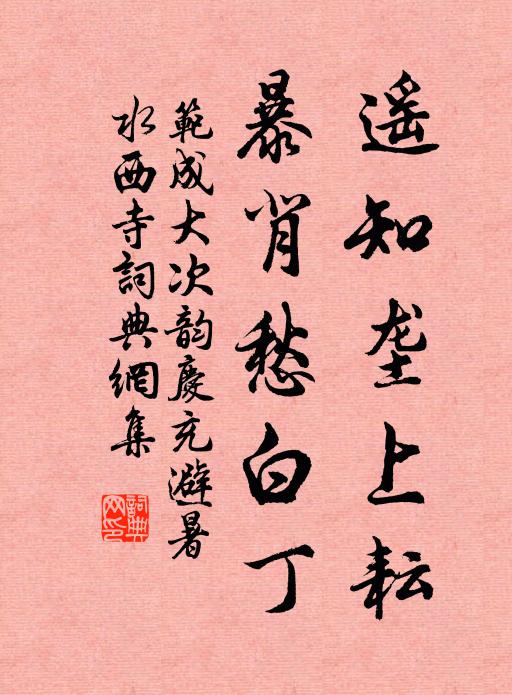 遥知垄上耘
暴背愁白丁
範成大次韵慶充避暑
水西寺詞典網集
詞典网印